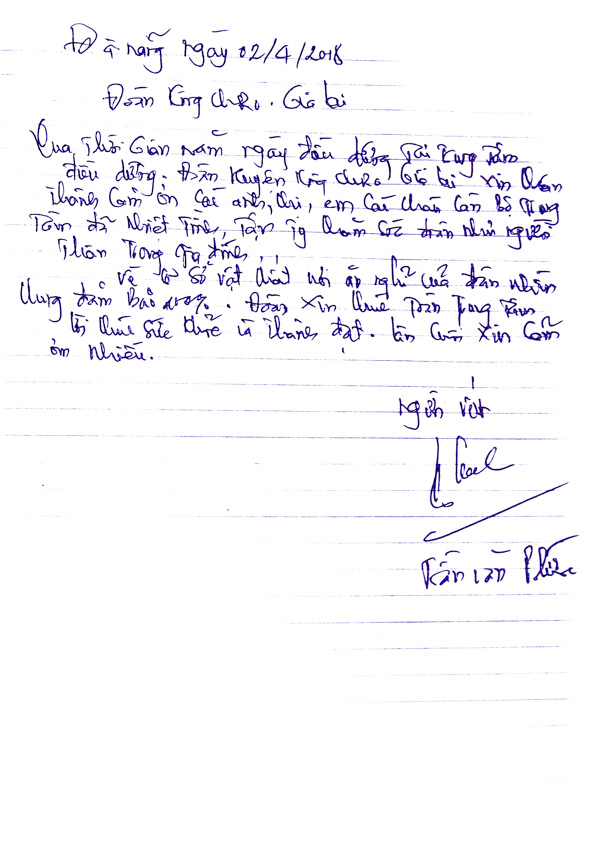 Đà nẵng ngày 02/4/2018
Đoàn Kông chRo. Gia lai
Qua thời Gian năm ngày điều dưỡng Tại Trung Tâm
điều dưỡng. Đoàn huyện Kông chRo Gia lai xin chân
thành Cảm ơn các anh, chị, em Các cháu Cán bộ Trung
Tâm đã nhiệt Tình, Tận Tụy chăm sóc đoàn như người
Thân Trong gia đình,
Về cơ sở vật chất nơi ăn nghỉ của đoàn nhìn
chung đảm bảo. Đoàn xin chúc Toàn Trung Tâm
lời chúc sức khỏe và thành đạt. lần cuối xin Cảm
ơn nhiều.
người viết
văn